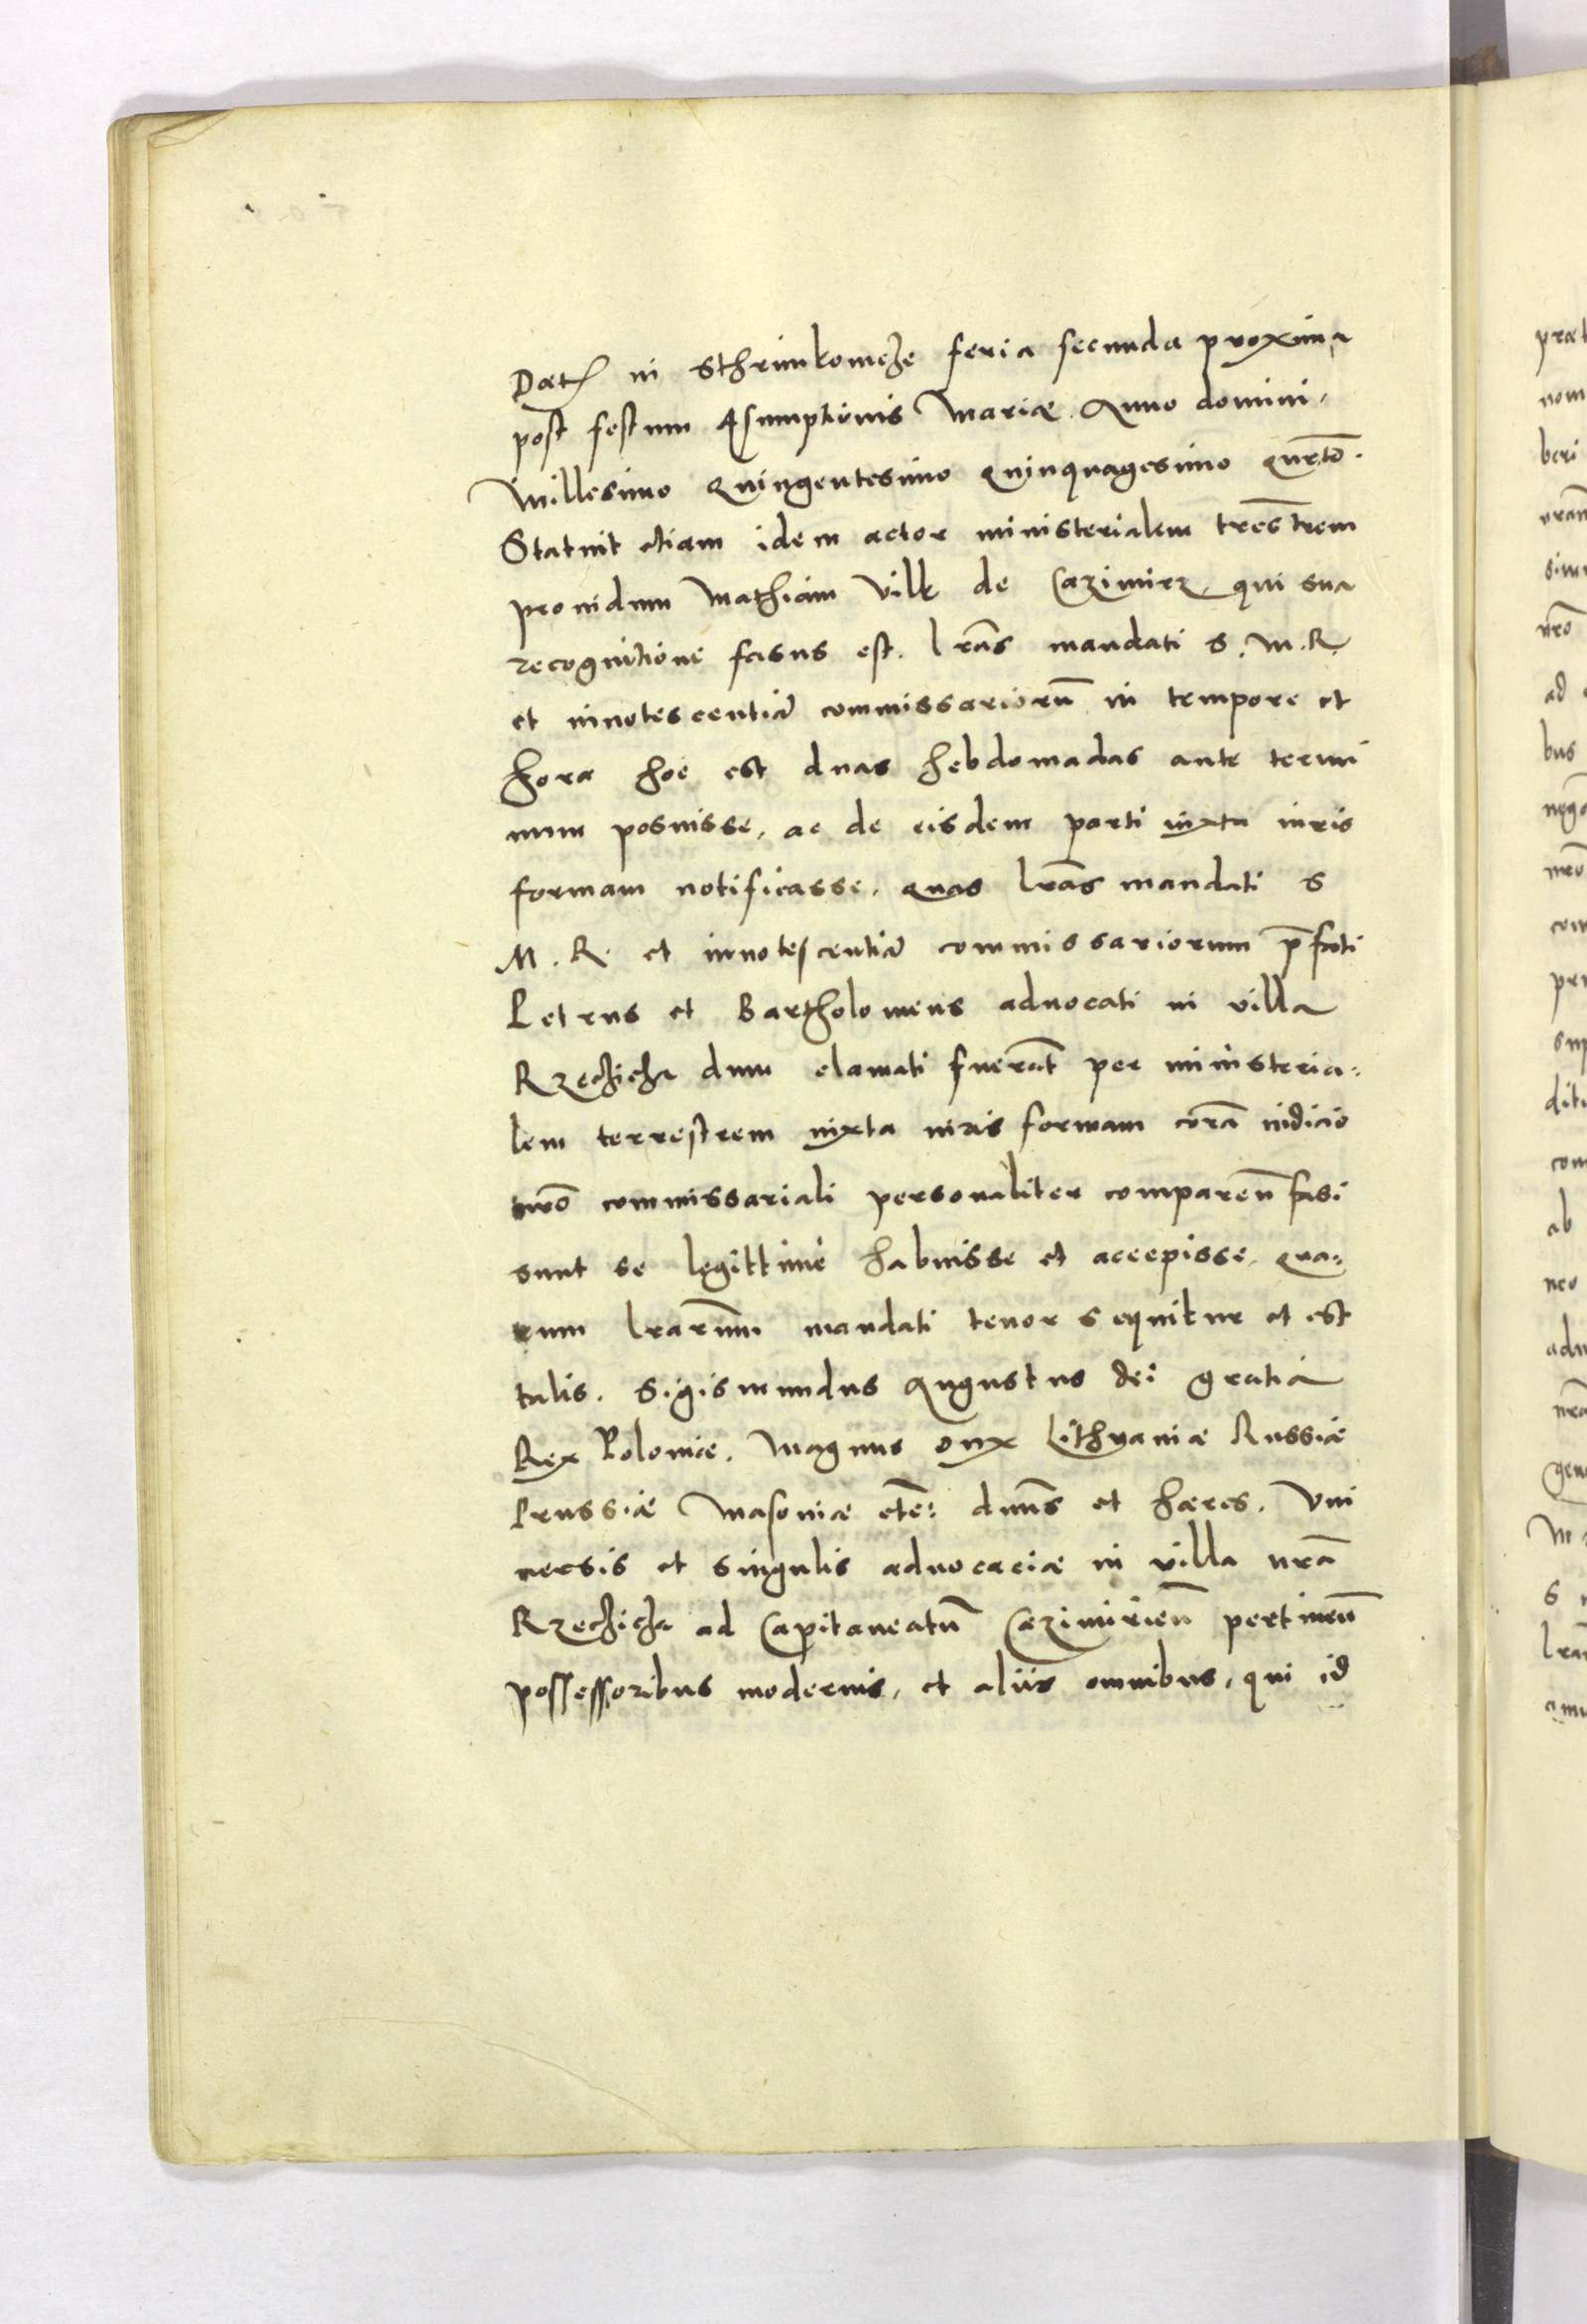 Dat in Sthrimkomcze feria secunda proxima
post festum Assumptionis Mariæ. Anno domini,
Millesimo Quingentesimo Quinquagesimo Quarto.
Statuit etiam idem actor ministerialem trestrem
prouidum Mathiam Vilk de Cazimirz, qui sua
recognitione fasus est. lras mandati S. M. R.
et innotescentiã commissariorũ in tempore et
hora hoc est duas hebdomadas ante termi
num posuisse, ac de eisdem parti iuxta iuris
formam notificasse, quas lras mandati S
M. R. et innotescentiã commissariorum pfati
Petrus et Bartholomeus aduocati in villa
Rzechicha dum clamati fuerat per ministeria=
lem terrestrem iuxta iuris formam corã iudicio
nro commissariali personaliter comparen fasi
sunt se legittime habuisse et accepisse, qua=
rum lrarum mandati tenor sequitur et est
talis. Sigismundus Augustus dei gratia
Rex Poloniæ, Magnus Dux Lithuaniæ Russiæ
Prussiæ Masoniæ etc: dnns et hæres. Vni
uersis et singulis aduocaciæ in villa nrã
Rzechicha ad Capitaneatũ Cazimirien pertinen
possessoribus modernis, et aliis omnibus, qui id